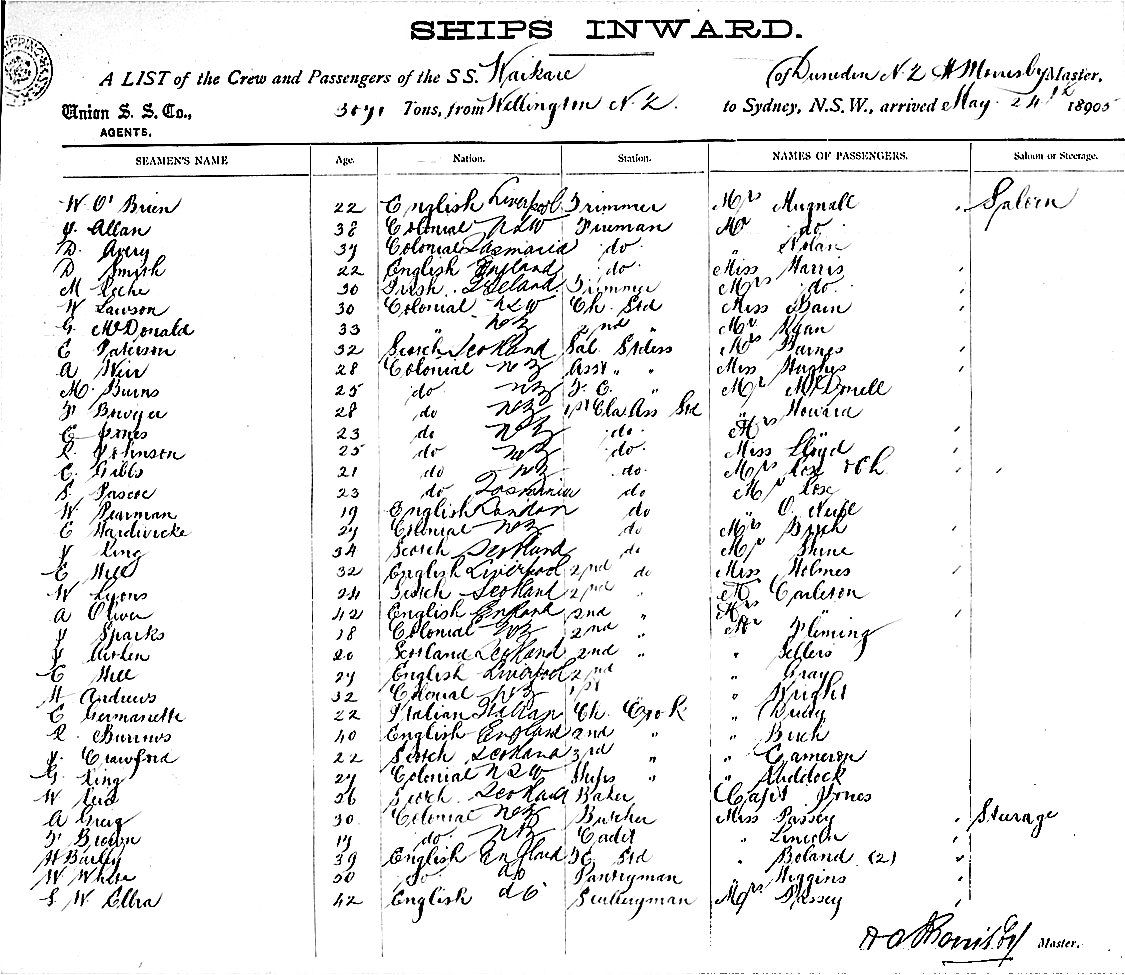 SHIPS INWARD.
A LIST of the Crew and Passengers of the S.S. Waikare (of Dunedin N.Z Master,
Union S. S. Co., 3071 Tons, from Wellington N.Z. to Sydney, N.S.W., arrived May 24th 18905
AGENTS.
SEAMEN'S NAME Age. Nation. Station. NAMES OF PASSENGERS. Saloon or Steerage.
W O'Brien 22 English Liverpool Trimmer Mrs Mugnall Saloon
J Allan 38 Colonial NSW Fireman Mr do
D. Avery 37 Colonial Tasmania do. " Nolan
D. Smith 22 English England do. Miss Harris
M Roche 30 Irish Ireland Trimmer Mrs do.
W Lawson 30 Colonial NSW Ch. Std Miss Bain
G McDonald 33 " NZ 2nd " Mr Ryan
E Paterson 32 Scotch Scotland Sal. Stdess Mrs Barnes
A Weir 28 Colonial NZ Asst " " Miss Hughes
M. Burns 25 do NZ F. C. " Mr McDonell
F Bowyer 28 do NZ 1st Class Std " Howard
E Jones 23 do NZ do. Mrs
R Johnson 25 do. NZ do. Miss Lloyd
C Gibbs 21 do NZ do. Mrs Cox & Ch
S Pascoe 23 do Tasmania do Mr Cox
W Pearman 19 English London do " O'Neill
E Hardwicke 27 Colonial NZ do Mrs Birch
J King 34 Scotch Scotland do Mr Shine
E Hill 32 English Liverpool 2nd do Miss Holmes
W Lyons 24 Scotch Scotland 2nd " M Carlson
A Oliver 42 English England 2nd " Mrs
J Sparks 18 Colonial NZ 2nd " Mr Fleming
J 20 Scotland Scotland 2nd " " Sellers
C Hill 27 English Liverpool 2nd " Gray
H Andrews 32 Colonial NZ 1st " Wright
E 22 Italian Italian Ch. Cook "
R. Burrows 40 English England 2nd " " Birch
J. Crawford 22 Scotch Scotland 3rd " " Cameron
G King 27 Colonial NSW Ships " " Ruddock
W Reid 36 Scotch Scotland Baker Capt Jones
A Greig 30 Colonial NZ Butcher Miss Passey Steerage
F Brown 17 do. NZ Cadet " Lincoln
H Bailey 39 English England FC Std " Boland (2)
W White 30 do do Pantryman " Higgins
S W 42 English do Sculleryman Mrs Passey
Master.